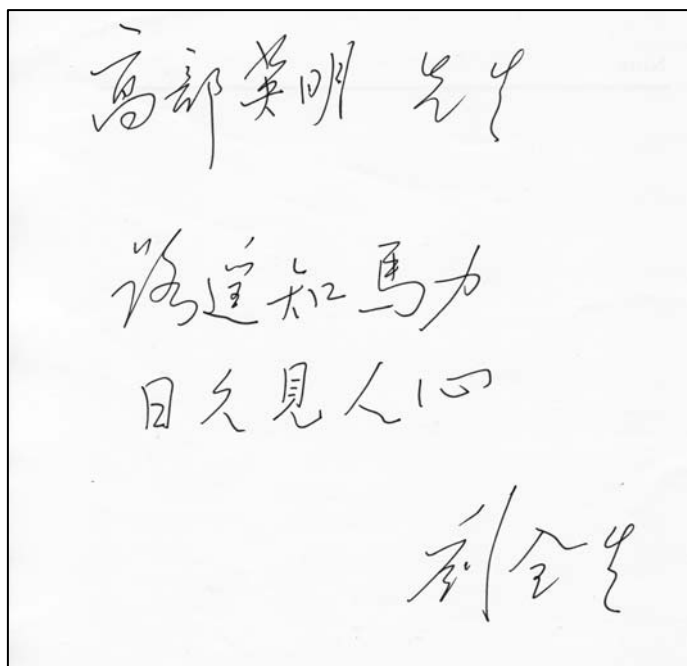 高部英明 先生
路遥知馬力
日久見人心
刘全生